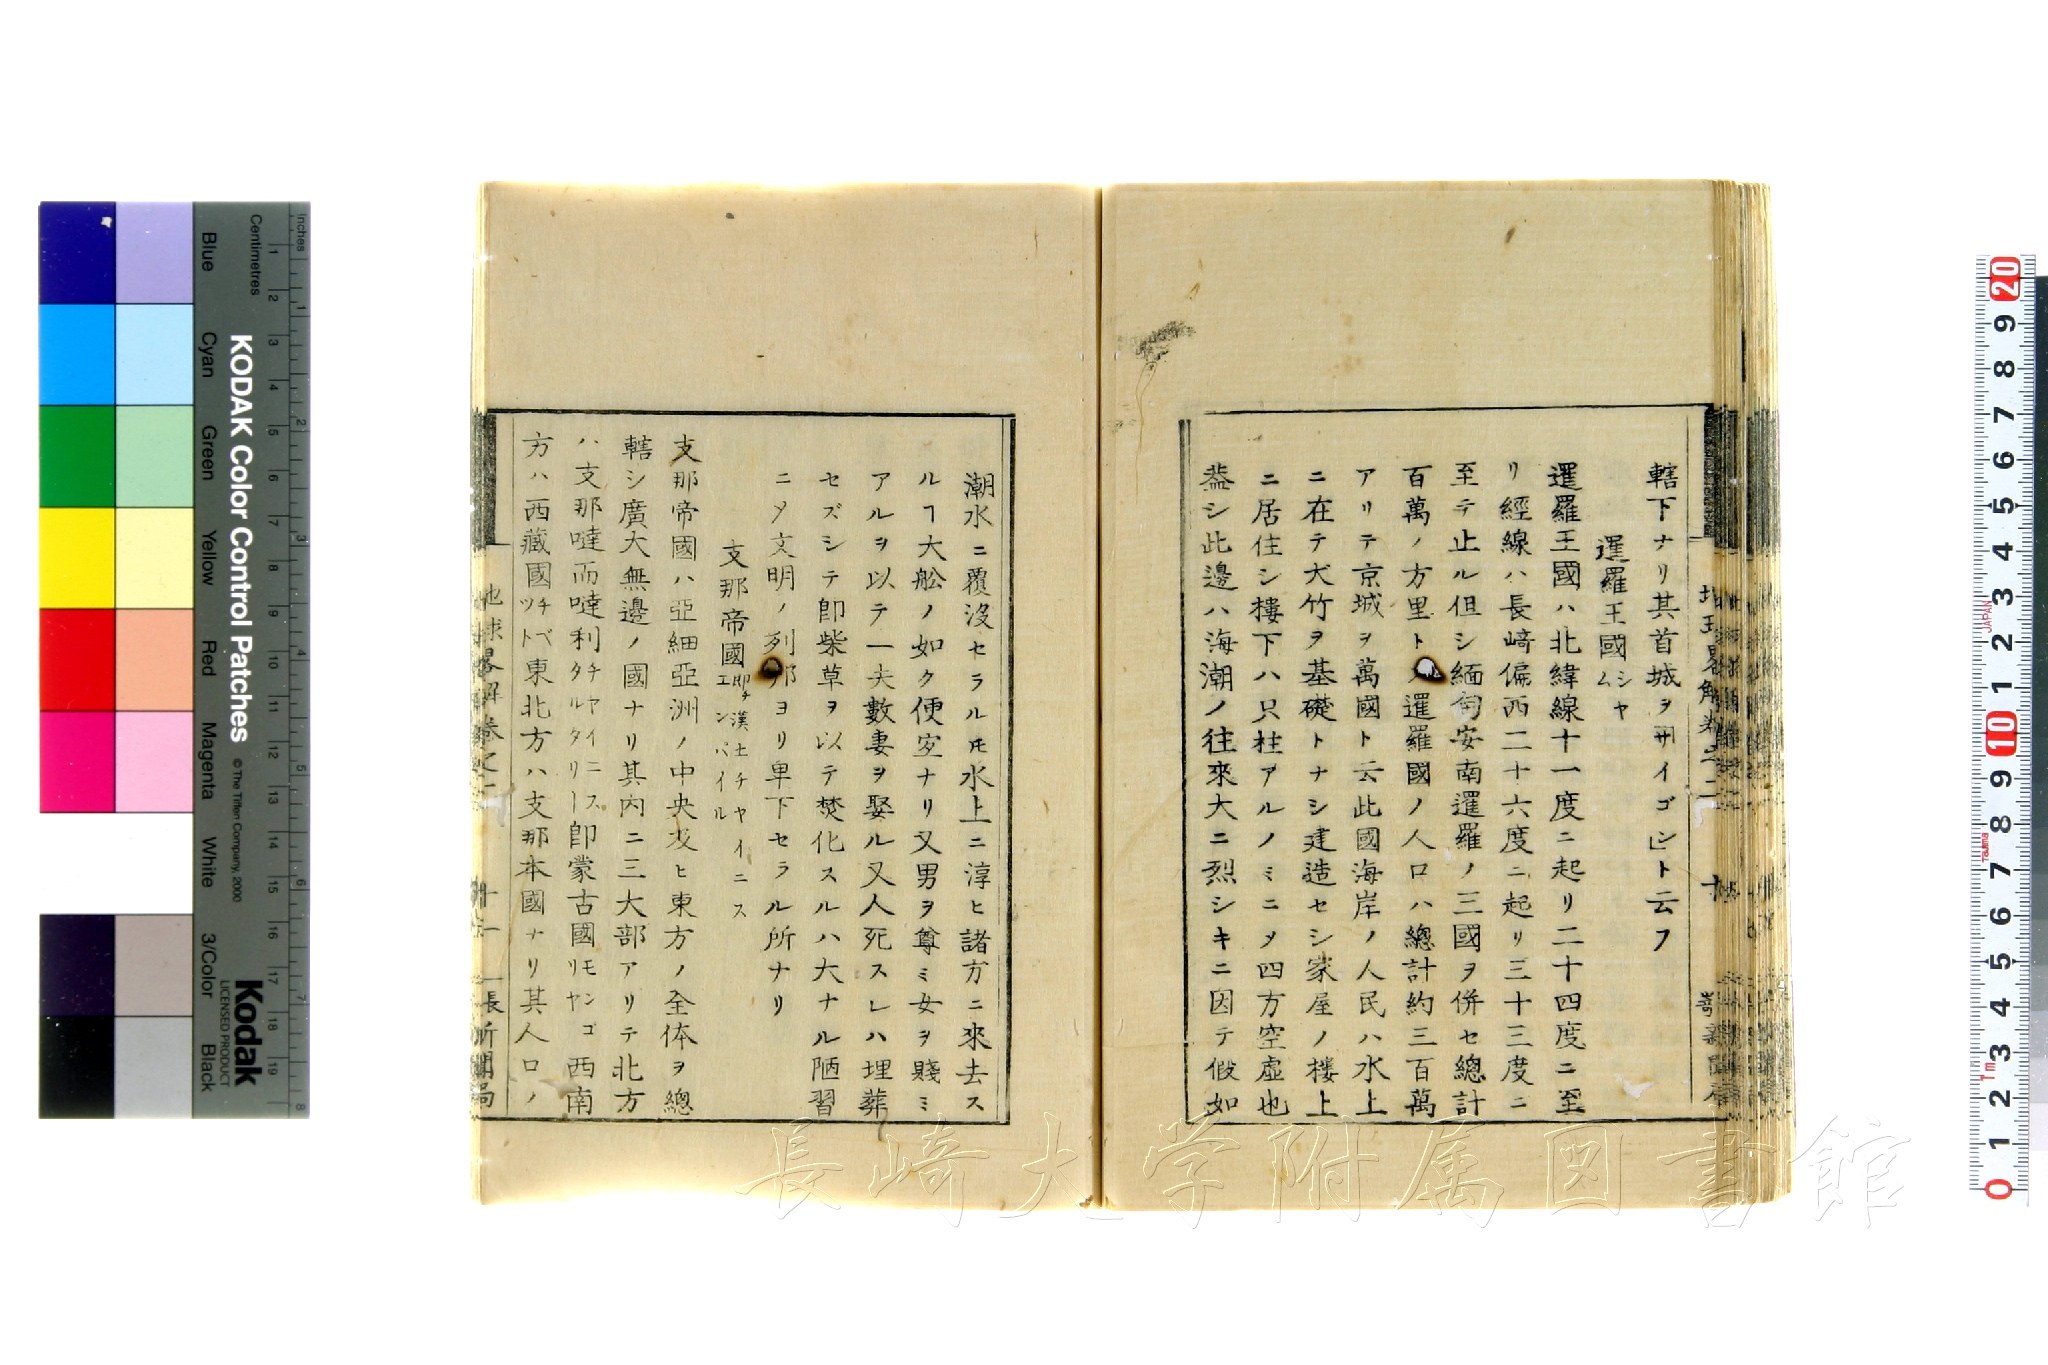 轄下ナリ其首城ヲ「サイゴン」ト云フ
暹羅王國シャム
暹羅王國ハ北緯線十一度ニ起リ二十四度ニ至
リ經線ハ長﨑偏西二十六度ニ起リ三十三度ニ
至テ止ル但シ緬甸安南暹羅ノ三國ヲ併セ總計
百萬ノ方里ト暹羅國ノ人口ハ總計約三百萬
アリテ京城ヲ萬國ト云此國海岸ノ人民ハ水上
ニ在テ大竹ヲ基礎トナシ建造セシ家屋ノ楼上
ニ居住シ樓下ハ只柱アルノミニメ四方空虚也
蓋シ此邊ハ海潮ノ往來大ニ烈シキニ因テ假如
潮水ニ覆没セラルモ水上ニ淳ヒ諸方ニ來去ス
ルヿ大舩ノ如ク便室ナリ又男ヲ尊ミ女ヲ賤ミ
アルヲ以テ一夫數妻ヲ娶ル又人死スレハ埋葬
セズシテ卽柴草ヲ以テ焚化スルハ大ナル陋習
ニメ文明ノ列邦ヨリ卑下セラル所ナリ
支那帝國即チ漢土チヤイニスエンパイル
支那帝國ハ亞細亞洲ノ中央及ヒ東方ノ全体ヲ總
轄シ廣大無邊ノ國ナリ其内ニ三大部アリテ北方
ハ支那噠而噠利チヤイニスタルタリー卽蒙古國モンゴリヤ西南
方ハ西藏國チベツト東北方ハ支那本國ナリ其人口ノ
地球畧解卷之二
十一
長﨑新聞局
KODAK Color Control Patches
© The Tiffen Company, 2000
Kodak
LICENSED PRODUCT
Inches
Centimetres
Blue
Cyan
Green
Yellow
Red
Magenta
White
3/Color
Black
20
9
8
7
6
5
4
3
2
1
10
9
8
7
6
5
4
3
2
1
0
JAPAN
長崎大学附属図書館